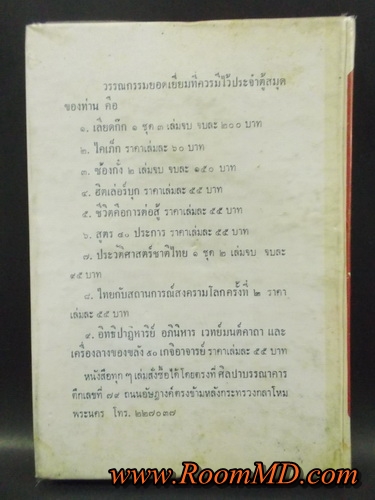 วรรณกรรมยอดเยี่ยมที่ควรมีไว้ประจำตู้สมุด
ของท่าน คือ
๑. เลียดก๊ก ๑ ชุด ๓ เล่มจบ จบละ ๒๐๐ บาท
๒. ไคเภ็ก ราคาเล่มละ ๖๐ บาท
๓. ซ้องกั๋ง ๒ เล่มจบ จบละ ๑๕๐ บาท
๔. ฮิตเล่อร์บุก ราคาเล่มละ ๕๕ บาท
๕. ชีวิตคือการต่อสู้ ราคาเล่มละ ๕๕ บาท
๖. สูตร ๘๐ ประการ ราคาเล่มละ ๕๕ บาท
๗. ประวัติศาสตร์ชาติไทย ๑ ชุด ๒ เล่มจบ จบละ
๙๕ บาท
๘. ไทยกับสถานการณ์สงครามโลกครั้งที่ ๒ ราคา
เล่มละ ๕๕ บาท
๙. อิทธิปาฏิหาริย์ อภินิหาร เวทย์มนต์คาถา และ
เครื่องลางของขลัง ๕๐ เกจิอาจารย์ ราคาเล่มละ ๕๕ บาท
หนังสือทุก ๆ เล่มสั่งซื้อได้โดยตรงที่ ศิลปาบรรณาคาร
ตึกเลขที่ ๗๙ ถนนอัษฎางค์ตรงข้ามหลังกระทรวงกลาโหม
พระนคร โทร. ๒๒๗๐๓๗
www.RoomMD.com